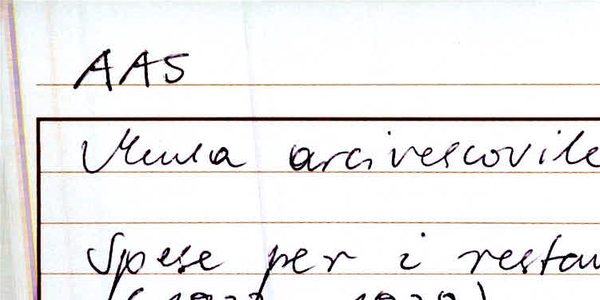 AAS
Mensa arcivescovile
Spese per i